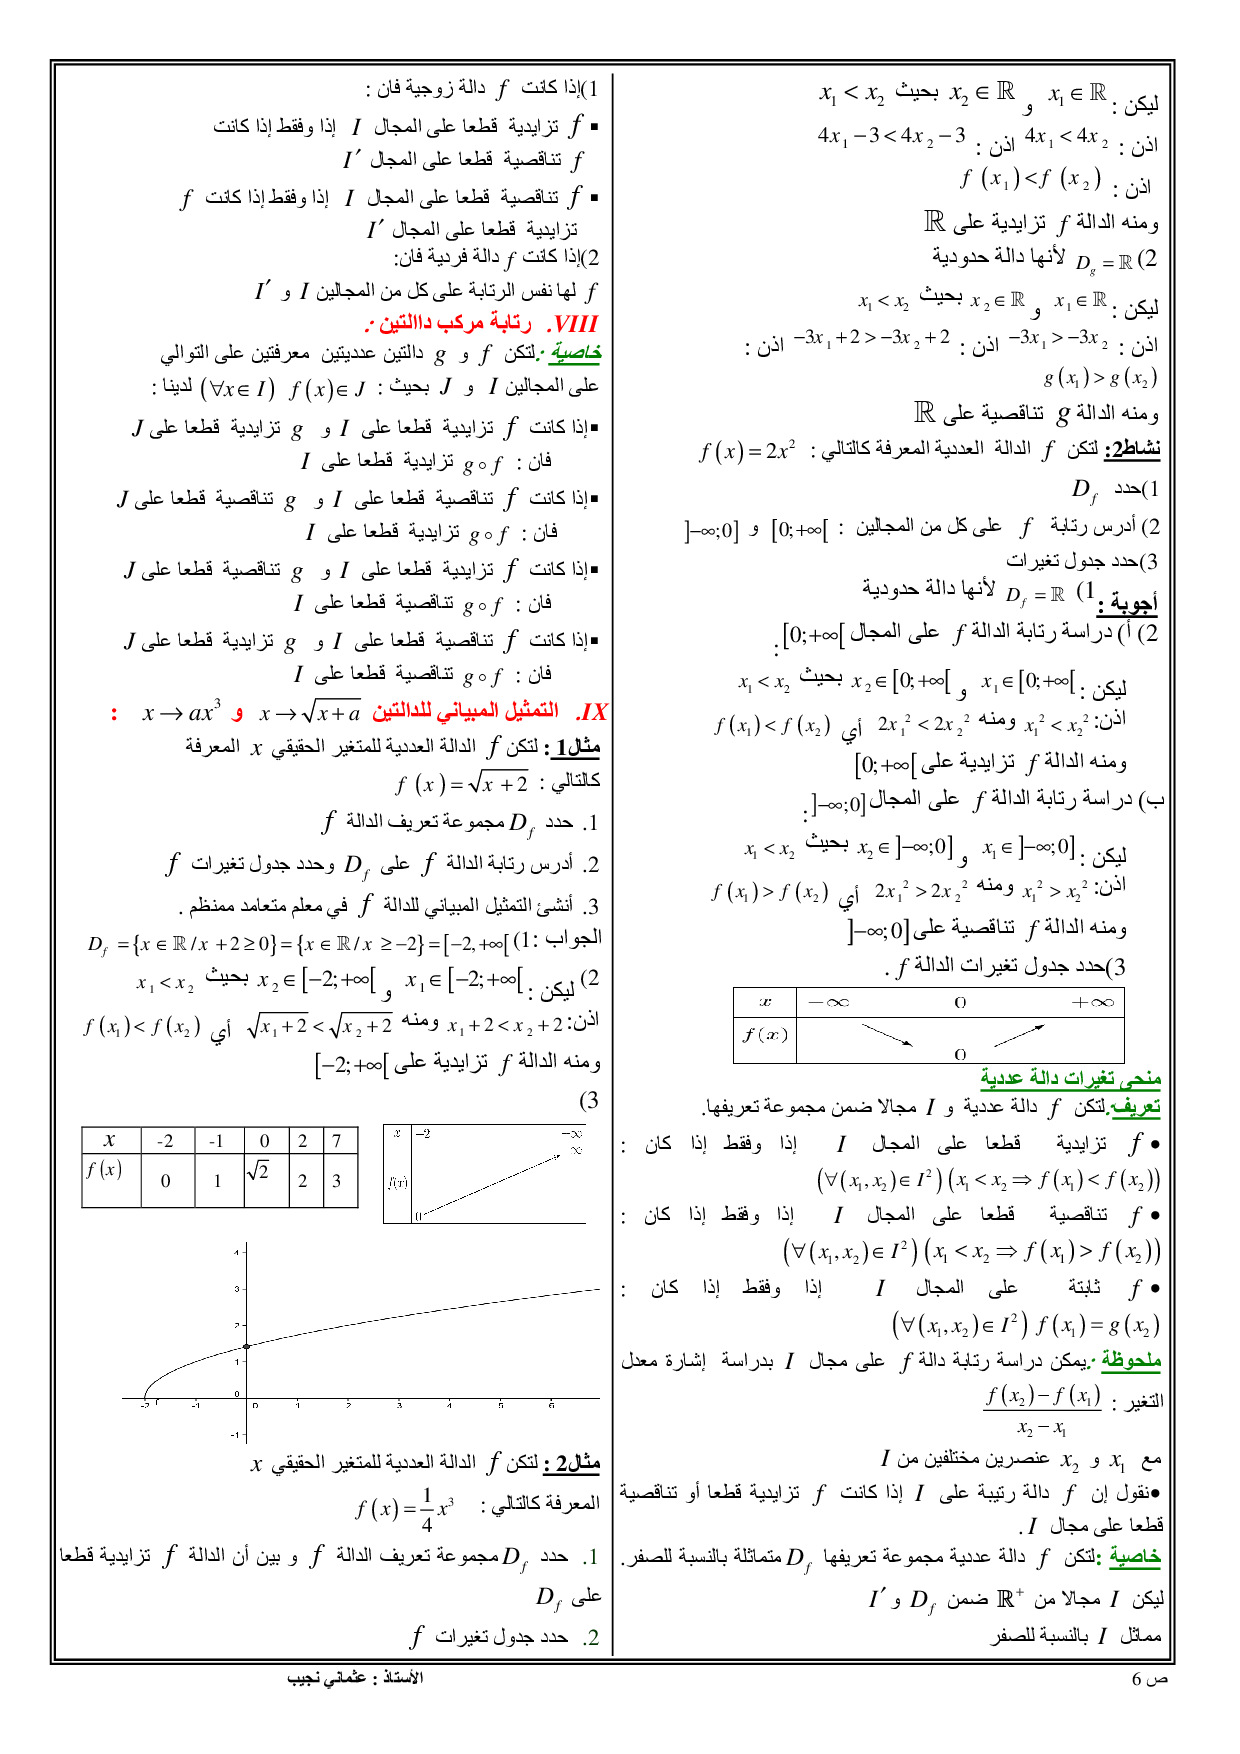 ليكن : x₁ ∈ ℝ و x₂ ∈ ℝ بحيث x₁ < x₂
اذن : 4x₁ < 4x₂ اذن : 4x₁ − 3 < 4x₂ − 3
اذن : f(x₁) < f(x₂)
ومنه الدالة f تزايدية على ℝ
2) D_g = ℝ لأنها دالة حدودية
ليكن : x₁ ∈ ℝ و x₂ ∈ ℝ بحيث x₁ < x₂
اذن : −3x₁ > −3x₂ اذن : −3x₁ + 2 > −3x₂ + 2 اذن :
g(x₁) > g(x₂)
ومنه الدالة g تناقصية على ℝ
نشاط2: لتكن f الدالة العددية المعرفة كالتالي : f(x) = 2x²
1)حدد D_f
2) أدرس رتابة f على كل من المجالين : [0;+∞[ و ]−∞;0]
3)حدد جدول تغيرات
أجوبة : 1) D_f = ℝ لأنها دالة حدودية
2) أ) دراسة رتابة الدالة f على المجال [0;+∞[ :
ليكن : x₁ ∈ [0;+∞[ و x₂ ∈ [0;+∞[ بحيث x₁ < x₂
اذن: x₁² < x₂² ومنه 2x₁² < 2x₂² أي f(x₁) < f(x₂)
ومنه الدالة f تزايدية على [0;+∞[
ب) دراسة رتابة الدالة f على المجال ]−∞;0] :
ليكن : x₁ ∈ ]−∞;0] و x₂ ∈ ]−∞;0] بحيث x₁ < x₂
اذن: x₁² > x₂² ومنه 2x₁² > 2x₂² أي f(x₁) > f(x₂)
ومنه الدالة f تناقصية على ]−∞;0]
3)حدد جدول تغيرات الدالة f .
x −∞ 0 +∞
f(x) 0
منحى تغيرات دالة عددية
تعريف:.لتكن f دالة عددية و I مجالا ضمن مجموعة تعريفها.
• f تزايدية قطعا على المجال I إذا وفقط إذا كان :
(∀(x₁, x₂) ∈ I²)(x₁ < x₂ ⇒ f(x₁) < f(x₂))
• f تناقصية قطعا على المجال I إذا وفقط إذا كان :
(∀(x₁, x₂) ∈ I²)(x₁ < x₂ ⇒ f(x₁) > f(x₂))
• f ثابتة على المجال I إذا وفقط إذا كان :
(∀(x₁, x₂) ∈ I²) f(x₁) = g(x₂)
ملحوظة :.يمكن دراسة رتابة دالة f على مجال I بدراسة إشارة معدل
التغير : (f(x₂) − f(x₁)) / (x₂ − x₁)
مع x₁ و x₂ عنصرين مختلفين من I
•نقول إن f دالة رتيبة على I إذا كانت f تزايدية قطعا أو تناقصية
قطعا على مجال I .
خاصية :لتكن f دالة عددية مجموعة تعريفها D_f متماثلة بالنسبة للصفر.
ليكن I مجالا من ℝ⁺ ضمن D_f و I′
مماثل I بالنسبة للصفر
1)إذا كانت f دالة زوجية فان :
▪ f تزايدية قطعا على المجال I إذا وفقط إذا كانت
f تناقصية قطعا على المجال I′
▪ f تناقصية قطعا على المجال I إذا وفقط إذا كانت f
تزايدية قطعا على المجال I′
2)إذا كانت f دالة فردية فان:
f لها نفس الرتابة على كل من المجالين I و I′
VIII. رتابة مركب داالتين :.
خاصية :.لتكن f و g دالتين عدديتين معرفتين على التوالي
على المجالين I و J بحيث : (∀x ∈ I) f(x) ∈ J لدينا :
▪إذا كانت f تزايدية قطعا على I و g تزايدية قطعا على J
فان : g∘f تزايدية قطعا على I
▪إذا كانت f تناقصية قطعا على I و g تناقصية قطعا على J
فان : g∘f تزايدية قطعا على I
▪إذا كانت f تزايدية قطعا على I و g تناقصية قطعا على J
فان : g∘f تناقصية قطعا على I
▪إذا كانت f تناقصية قطعا على I و g تزايدية قطعا على J
فان : g∘f تناقصية قطعا على I
IX. التمثيل المبياني للدالتين x → √(x+a) و x → ax³ :
مثال1 : لتكن f الدالة العددية للمتغير الحقيقي x المعرفة
كالتالي : f(x) = √(x+2)
1. حدد D_f مجموعة تعريف الدالة f
2. أدرس رتابة الدالة f على D_f وحدد جدول تغيرات f
3. أنشئ التمثيل المبياني للدالة f في معلم متعامد ممنظم .
الجواب :1) D_f = {x ∈ ℝ / x + 2 ≥ 0} = {x ∈ ℝ / x ≥ −2} = [−2,+∞[
2) ليكن : x₁ ∈ [−2;+∞[ و x₂ ∈ [−2;+∞[ بحيث x₁ < x₂
اذن: x₁ + 2 < x₂ + 2 ومنه √(x₁+2) < √(x₂+2) أي f(x₁) < f(x₂)
ومنه الدالة f تزايدية على [−2;+∞[
3)
x −2 −∞
f(x) 0 ∞
x -2 -1 0 2 7
f(x) 0 1 √2 2 3
4
3
2
1
0
-2 -1 0 1 2 3 4 5 6
-1
مثال2 : لتكن f الدالة العددية للمتغير الحقيقي x
المعرفة كالتالي : f(x) = 1/4 x³
1. حدد D_f مجموعة تعريف الدالة f و بين أن الدالة f تزايدية قطعا
على D_f
2. حدد جدول تغيرات f
ص 6
الأستاذ : عثماني نجيب